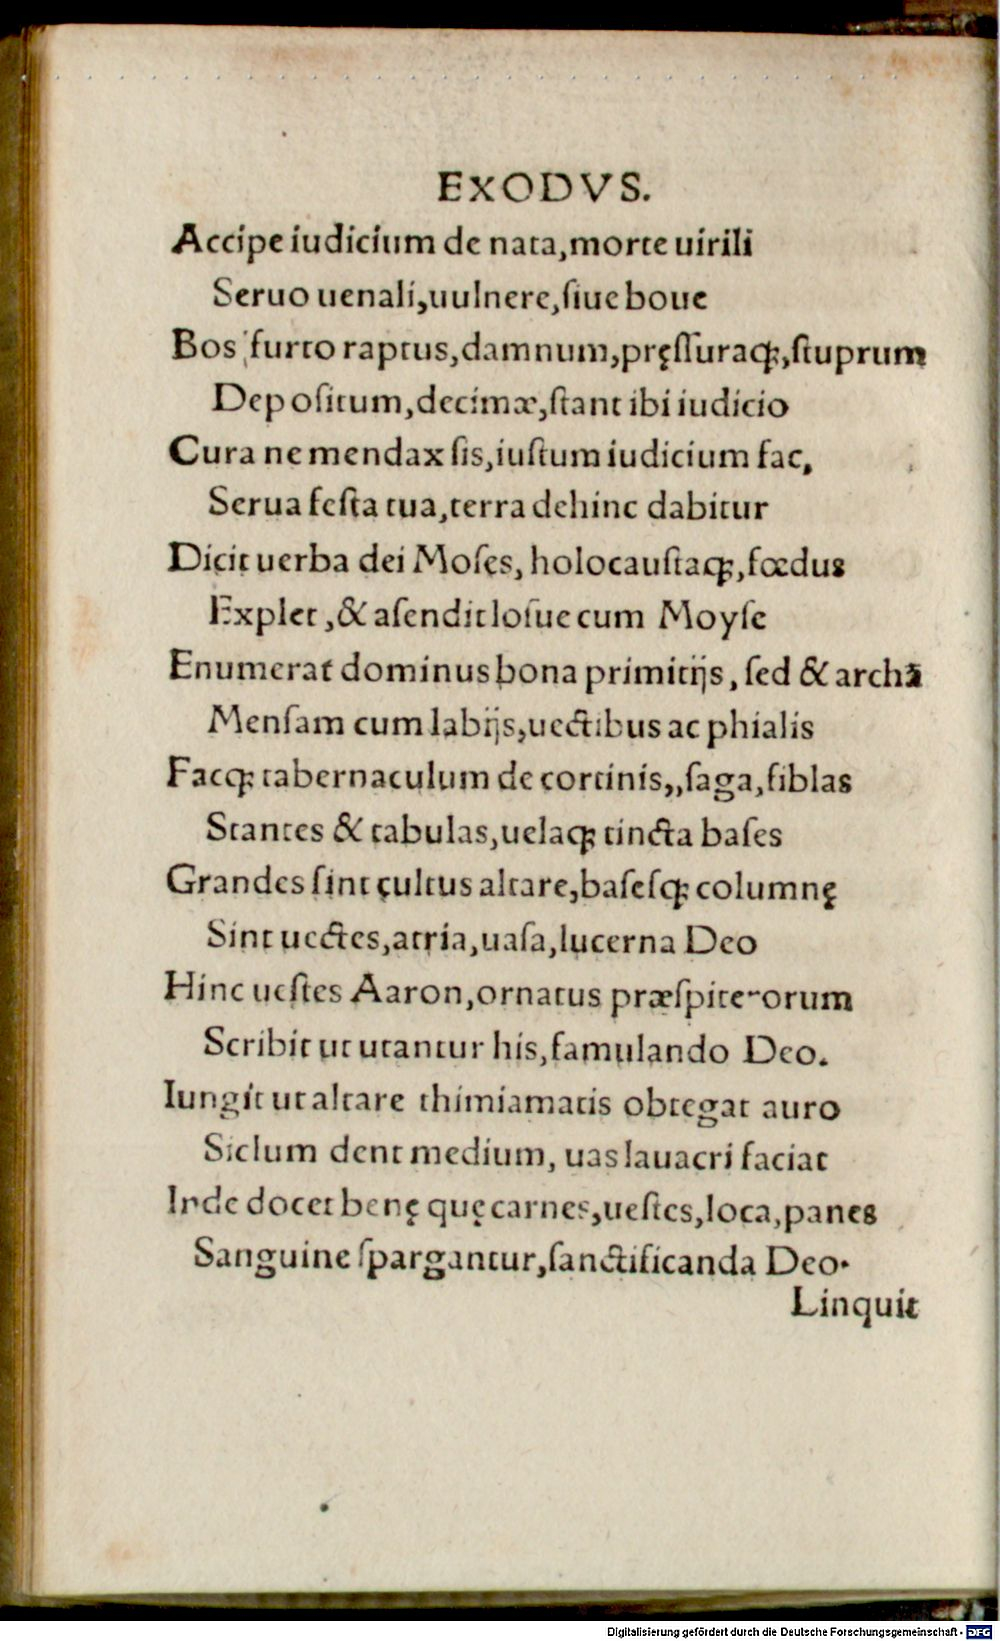 EXODVS.
Accipe iudicium de nata,morte uirili
Seruo uenali,uulnere,ſiue boue
Bos furto raptus,damnum,pręſſuraqꝫ,ſtuprum
Depoſitum,decimæ,ſtant ibi iudicio
Cura ne mendax ſis,iuſtum iudicium fac,
Serua feſta tua,terra dehinc dabitur
Dicit uerba dei Moſes, holocauſtaqꝫ,fœdus
Explet ,& aſendit Ioſue cum Moyſe
Enumerat dominus bona primitijs, ſed & archā
Menſam cum labijs,uectibus ac phialis
Facqꝫ tabernaculum de cortinis,,ſaga,fiblas
Stantes & tabulas,uelaqꝫ tincta baſes
Grandes ſint cultus altare,baſeſqꝫ columnę
Sint uectes,atria,uaſa,lucerna Deo
Hinc ueſtes Aaron,ornatus præſpiterorum
Scribit ut utantur his,famulando Deo.
Iungit ut altare thimiamatis obtegat auro
Siclum dent medium, uas lauacri faciat
Inde docet benę quę carnes,ueſtes,loca,panes
Sanguine ſpargantur,ſanctificanda Deo.
Linquit
Digitalisierung gefördert durch die Deutsche Forschungsgemeinschaft - DFG